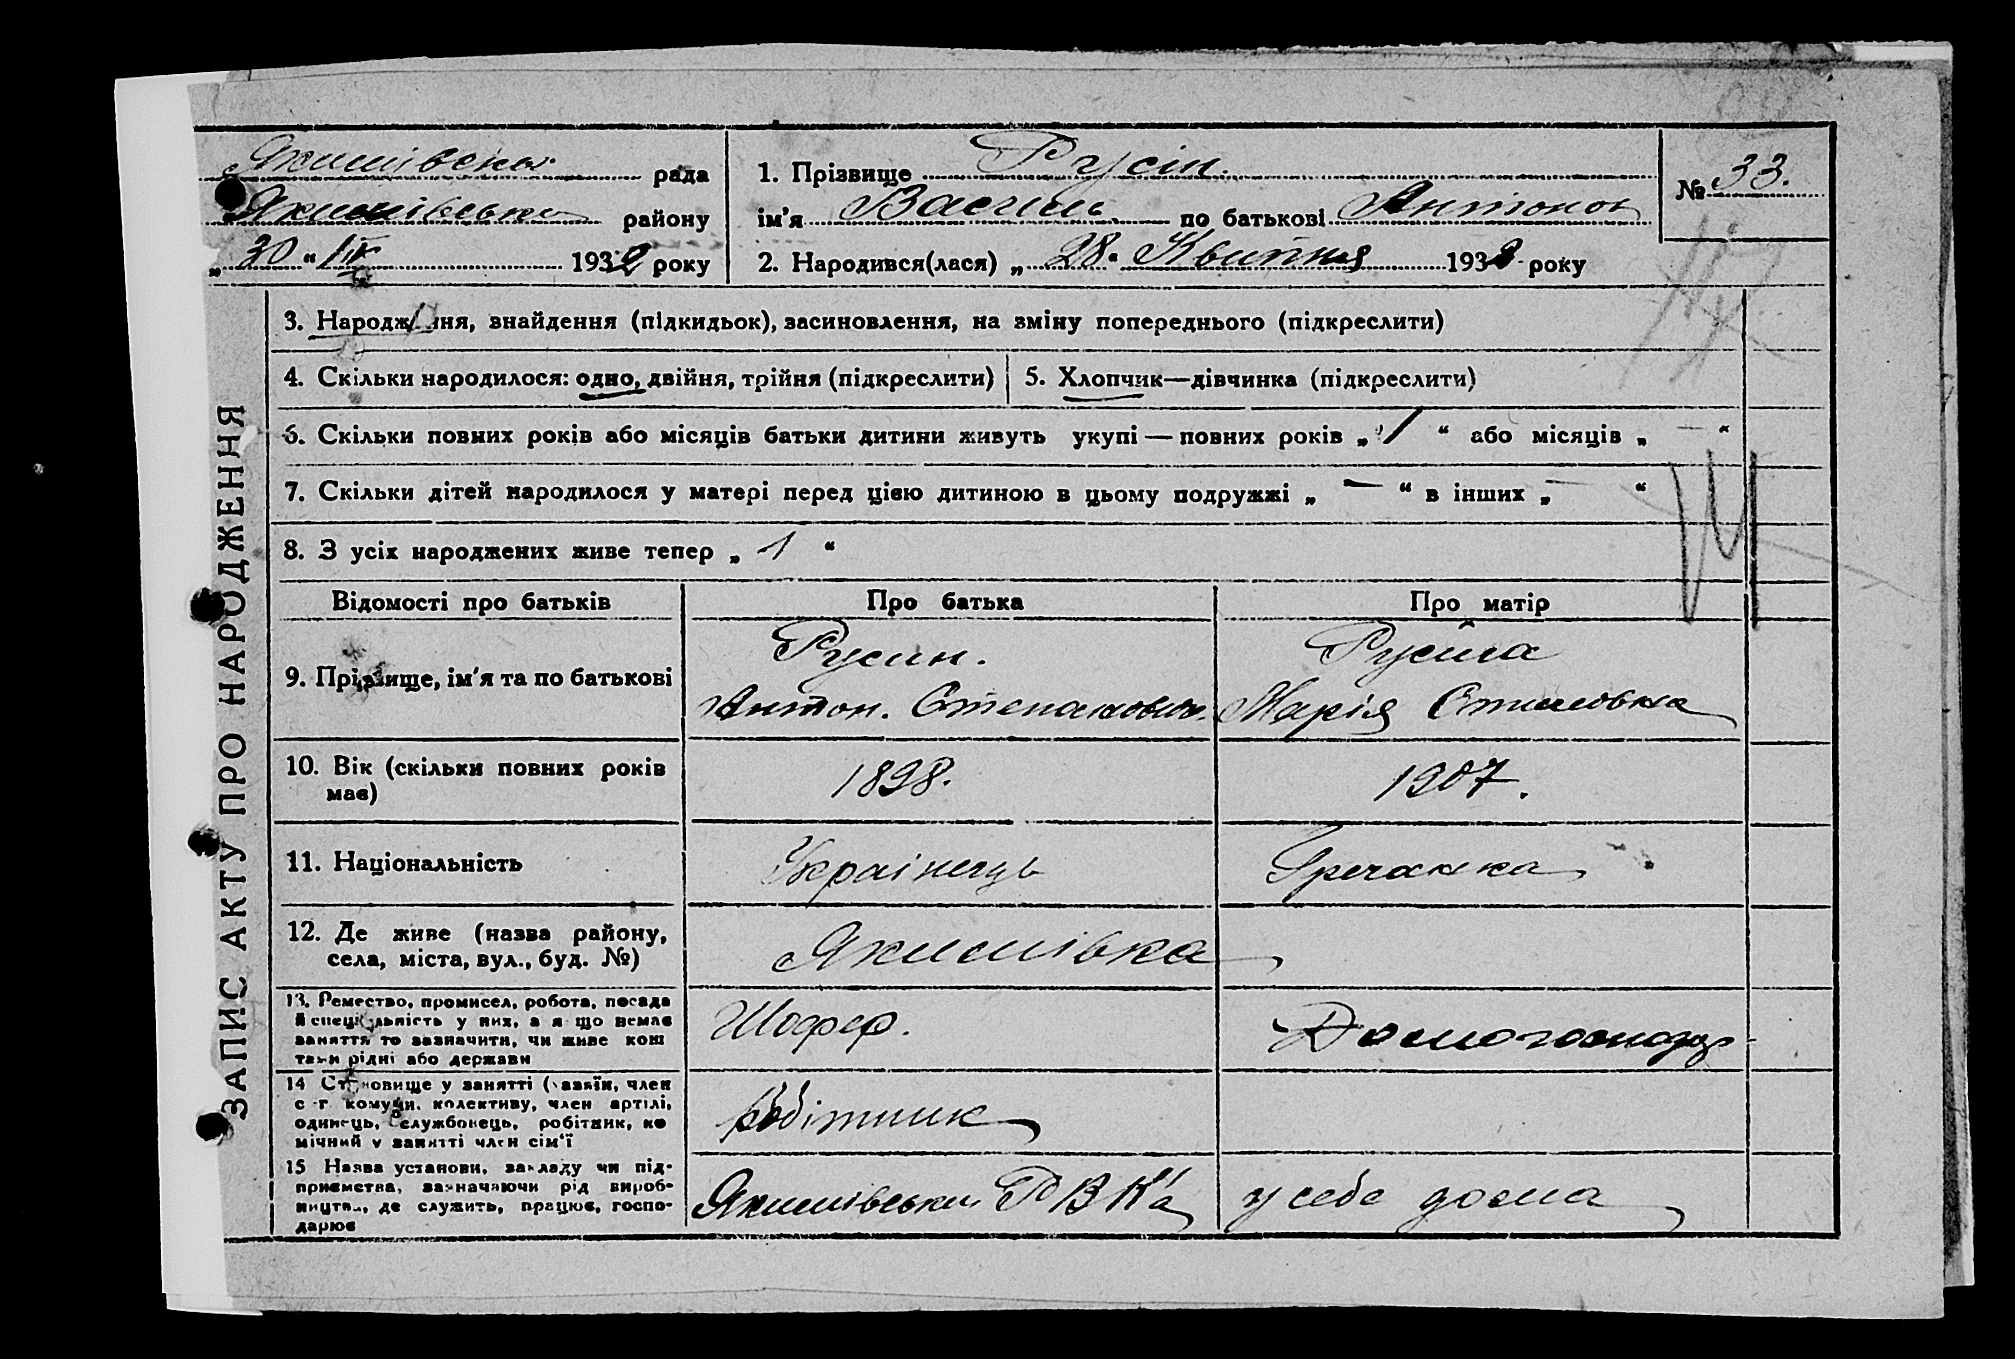 ЗАПИС АКТУ ПРО НАРОДЖЕННЯ
рада
району
„ 30 “ 1932 року
1. Прізвище Русін.
ім'я по батькові Антонов
2. Народився(лася) „ 28 “ Квитня 1932 року
№ 33.
3. Народження, знайдення (підкидьок), засиновлення, на зміну попереднього (підкреслити)
4. Скільки народилося: одно, двійня, трійня (підкреслити)
5. Хлопчик—дівчинка (підкреслити)
6. Скільки повних років або місяців батьки дитини живуть укупі — повних років „ 1 “ або місяців „ — “
7. Скільки дітей народилося у матері перед цією дитиною в цьому подружжі „ — “ в інших „ — “
8. З усіх народжених живе тепер „ 1 “
Відомості про батьків
Про батька
Про матір
9. Прізвище, ім'я та по батькові
Русин.
Антон. Степанович.
Русина
Марія
10. Вік (скільки повних років
має)
1898.
1907.
11. Національність
Українець
Гречанка
12. Де живе (назва району,
села, міста, вул., буд. №)
Якимівка
13. Ремество, промисел, робота, посада
й спеціяльність у них, а я що немає
заняття то зазначити, чи живе кош
тами рідні або держави
Шофер.
14 Становище у занятті (хазяїн, член
с-г. комуни, колективу, член артілі,
одинець, службовець, робітник, по
мічний у занятті член сім'ї
робітник
15 Назва установи, закладу чи під-
приємства, зазначаючи рід вироб-
ництва, де служить, працює, госпо-
дарює
Якимівський РВК'а
у себе дома